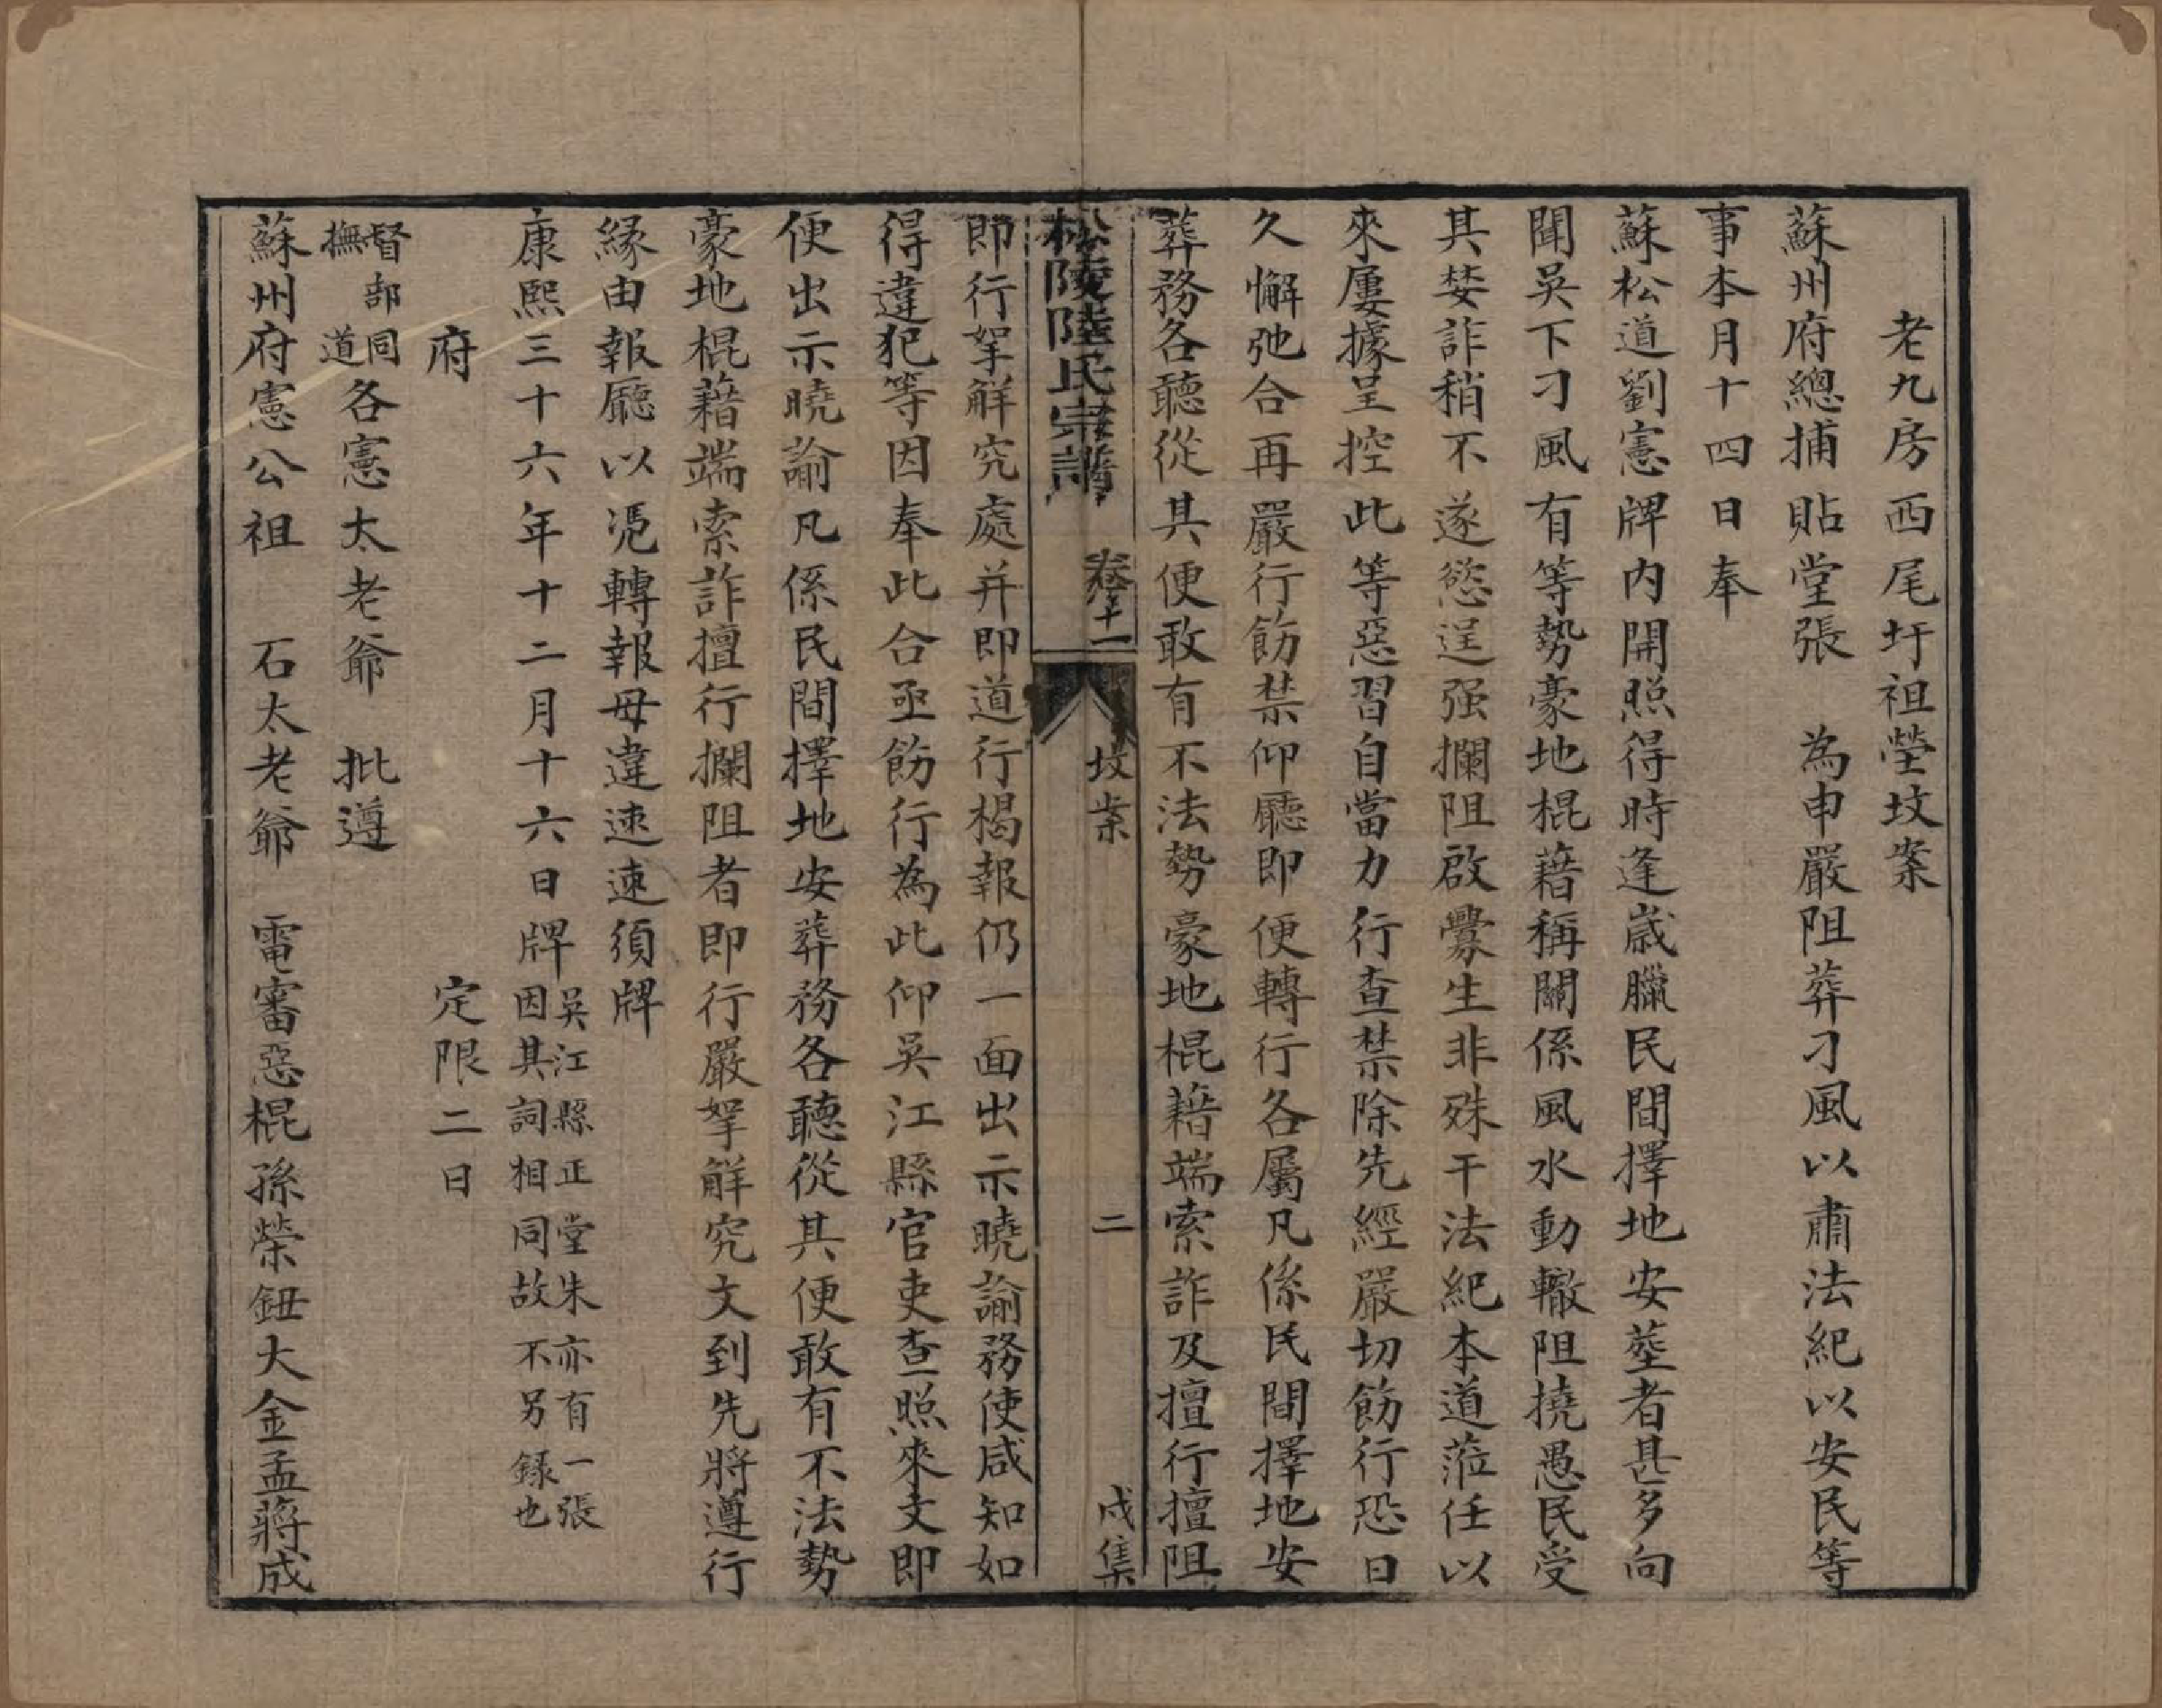 老九房西尾圩祖塋坟案
蘇州府總捕貼堂張　為申嚴阻葬刁風以肅法紀以安民等
事本月十四日奉
蘇松道劉憲牌內開照得時逢歲臘民間擇地安塟者甚多向
聞吳下刁風有等勢豪地棍藉稱關係風水動轍阻撓愚民受
其婪詐稍不遂慾逞强攔阻啟釁生非殊干法紀本道蒞任以
來屢據呈控此等惡習自當力行查禁除先經嚴切飭行恐日
久懈弛合再嚴行飭禁仰廳即便轉行各屬凡係民間擇地安
葬務各聽從其便敢有不法勢豪地棍藉端索詐及擅行擅阻
松陵陸氏宗譜　卷十一　坟案　二　戌集
即行拏解究處并即道行楬報仍一面出示曉諭務使咸知如
得違犯等因奉此合亟飭行為此仰吳江縣官吏查照來文即
便出示曉諭凡係民間擇地安葬務各聽從其便敢有不法勢
豪地棍藉端索詐擅行攔阻者即行嚴拏解究文到先將遵行
緣由報廳以凭轉報毋違速速須牌
康熙三十六年十二月十六日牌 吳江縣正堂朱亦有一張
因其詞相同故不另錄也
府　定限二日
督部同
撫　道 各憲太老爺　批遵
蘇州府憲公祖　石太老爺　電審惡棍孫榮鈕大金孟蔣成